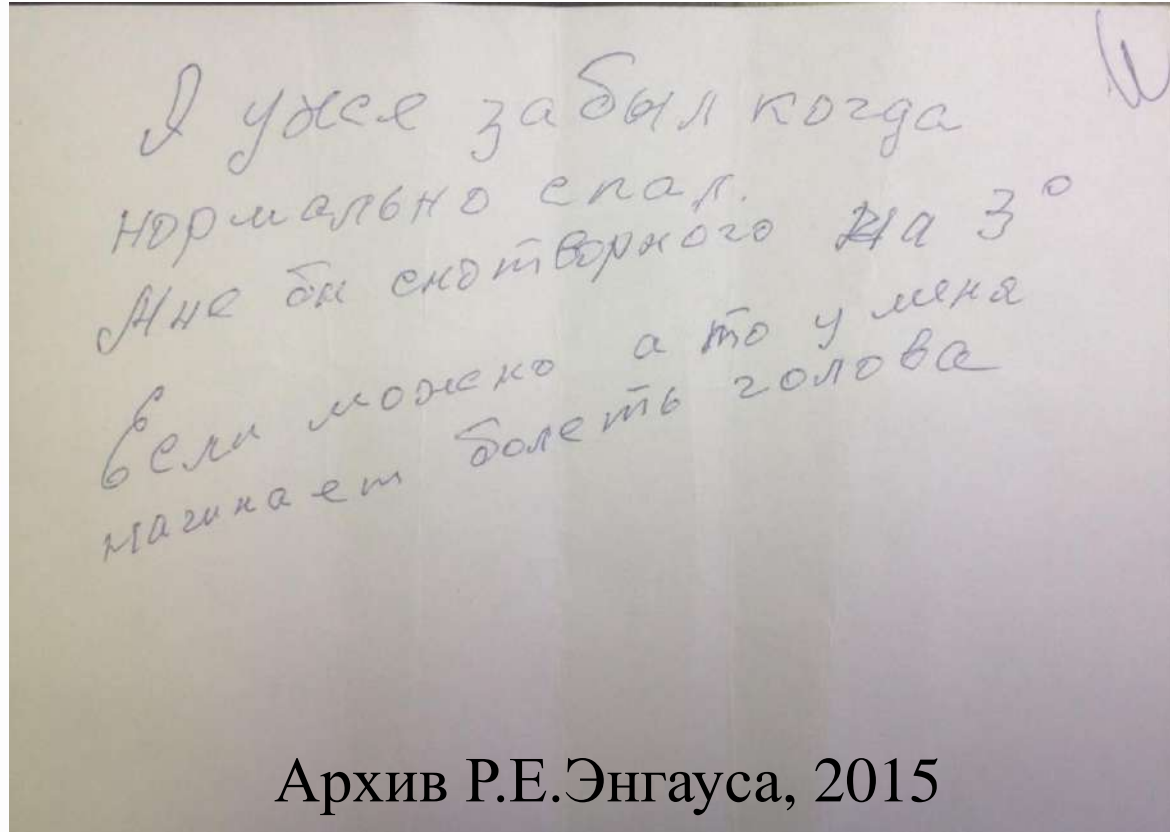 Я уже забыл когда
нормально спал.
Мне бы снотворного на 3°
Если можно а то у меня
начинает болеть голова
Архив Р.Е.Энгауса, 2015